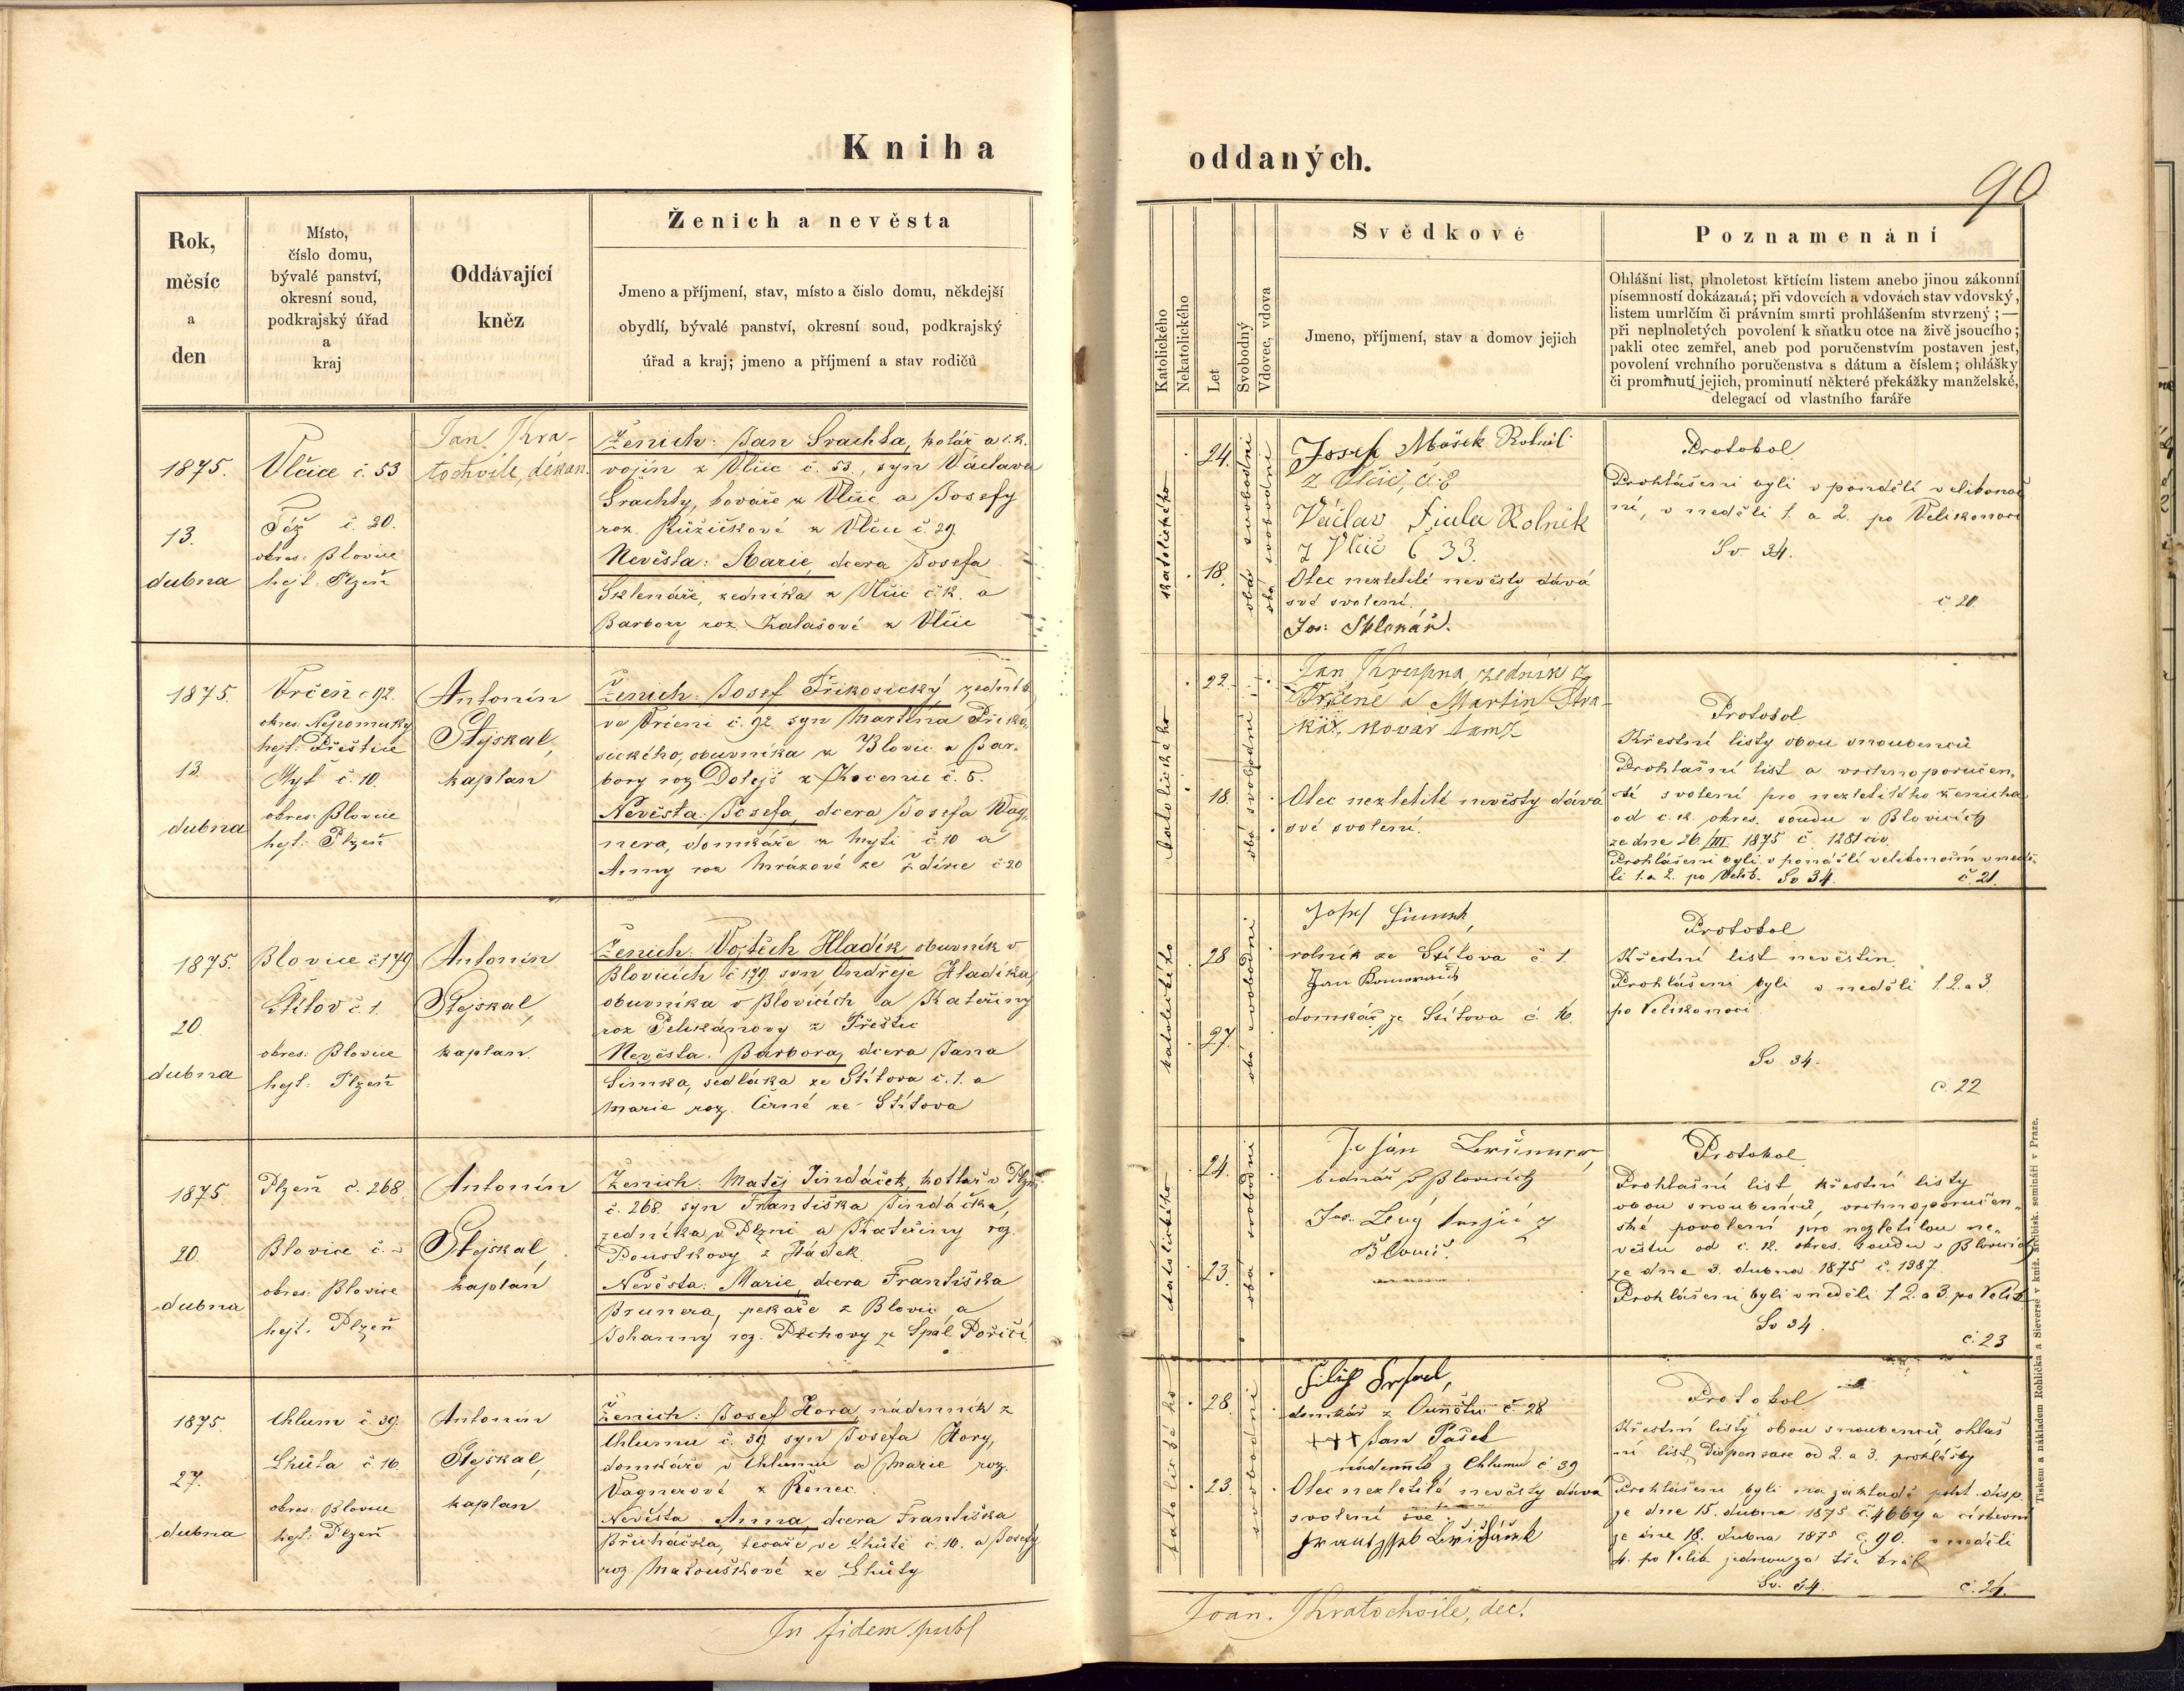 Kniha
oddaných.
90
Rok,
měsíc
a
den
Místo,
číslo domu,
bývalé panství,
okresní soud,
podkrajský úřad
a
kraj
Oddávající
kněz
Ženich a nevěsta
Jmeno a příjmení, stav, místo a číslo domu, někdejší
obydlí, bývalé panství, okresní soud, podkrajský
úřad a kraj; jmeno a příjmení a stav rodičů
Katolického
Nekatolického
Let
Svobodný
Vdovec, vdova
Svědkové
Jmeno, příjmení, stav a domov jejich
Poznamenání
Ohlášní list, plnoletost křtícím listem anebo jinou zákonní
písemností dokázaná; při vdovcích a vdovách stav vdovský,
listem umrlčím či právním smrti prohlášením stvrzený; —
při neplnoletých povolení k sňatku otce na živě jsoucího;
pakli otec zemřel, aneb pod poručenstvím postaven jest,
povolení vrchního poručenstva s dátum a číslem; ohlášky
či prominutí jejich, prominutí některé překážky manželské,
delegací od vlastního faráře
1875.
13.
dubna
Vlčice č. 53
Též č. 20.
okres: Blovice
hejt: Plzeň
Jan Kra-
tochvile, děkan.
Ženich: Jan Šrachta, kolář a c. k.
vojín z Vlčic č. 53., syn Václava
Šrachty, kováře z Vlčic a Josefy
roz. Růžičkové z Vlčic č. 29.
Nevěsta: Marie, dcera Josefa
Sklenáře, zedníka z Vlčic č. 2. a
Barbory roz. Kalašové z Vlčic
katolického
24.
18.
oba svobodni
Josef Mašek Rolník
z Vlčic, č. 8
Václav Fiala Rolník
z Vlčic č 33.
Otec nezletilé nevěsty dává
své svolení.
Jos: Sklenář.
Protokol
Prohlášeni byli v pondělí velikonoč
ní, v neděli 1. a 2. po Velikonoci
Sv. 34.
č 20.
1875.
13.
dubna
Vrčeň č 92.
okres: Nepomucký
hejt: Přeštice
Myť č. 10.
okres: Blovice
hejt: Plzeň
Antonín
Stejskal,
kaplan
Ženich: Josef Přikosický, zedník
ve Vrčeni č. 92. syn Martina Přiko-
sického, obuvníka z Blovic a Bar-
bory roz. Dolejš z Kocenic č. 5.
Nevěsta: Josefa, dcera Josefa Wag-
nera, domkáře z Myti č 10 a
Anny roz Mrázové ze Ždírce č 20
katolického
22.
18.
oba svobodni
Jan Krupna, zedník z
Vrčeně a Martin Stra-
ka, kovář tamž
Otec nezletilé nevěsty dává
své svolení.
Protokol
Křestní listy obou snoubenců
Prohlašní list a vrchnoporučen-
ské svolení pro nezletilého ženicha
od c. k. okres. soudu v Blovicích
ze dne 26. /III 1875 č. 1281 civ.
Prohlášeni byli v pondělí velikonoční v nedě-
li 1. a 2. po Velik. Sv 34.
č. 21.
1875.
20.
dubna
Blovice č 179
Štítov č. 1.
okres: Blovice
hejt: Plzeň
Antonín
Stejskal,
kaplan.
Ženich: Vojtěch Hladík, obuvník v
Blovicích č 179, syn Ondřeje Hladíka,
obuvníka v Blovicích a Kateřiny
roz Pelikánovy z Přeštic
Nevěsta: Barbora, dcera Jana
Šimka, sedláka ze Štítova č. 1. a
Marie roz. Černé ze Štítova
katolického
28
27.
oba svobodni
Josef Šimek,
rolník ze Štítova č 1.
domkář ze Štítova č. 16.
Protokol
Křestní list nevěstin
Prohlášeni byli v neděli 1. 2. a 3
po Velikonoci.
Sv 34.
č. 22
1875
20.
dubna
Plzeň č. 268
Blovice č.
okres: Blovice
hejt. Plzeň
Antonín
Stejskal,
kaplan
Ženich: Matěj Jindáček, kotlář v Plzni
č. 268 syn Františka Jindáčka,
zedníka v Plzni a Kateřiny roz.
Pouskovy z Hádek
Nevěsta: Marie, dcera Františka
Brunera, pekaře z Blovic a
Johanny roz. Plchovy ze Spál. Poříčí.
katolického
24.
23.
oba svobodni
bednář v Blovicích
Jos. Levý krejčí z
Blovic.
Protokol
Prohlašní list křestní listy
obou snoubenců, vrchnoporučen-
ské povolení pro nezletilou ne-
věstu od c. k. okres. soudu v Blovicích
ze dne 3. dubna 1875 č. 1387.
Prohlášeni byli v neděli 1. 2. a 3. po Velik.
Sv 34.
č. 23
1875
27.
dubna
Chlum č. 39.
Lhůta č. 16
okres: Blovice
hejt: Plzeň
Antonín
Stejskal,
kaplan
Ženich: Josef Hora, nádenník z
Chlumu č. 39. syn Josefa Hory,
domkáře v Chlumu a Marie roz.
Vagnerové z Řenec.
Nevěsta Anna, dcera Františka
Břicháčka, tesaře ve Lhůtě č. 10. a Josefy
roz. Matouškové ze Lhůty
katolického
28.
23.
svobodni
domkář z Ouňětic č. 28
+++ Jan Pašek
nádenník z Chlumu č 39
Otec nezletilé nevěsty dává
svolení své.
Protokol
Křestní listy obou snoubenců, ohláš
ní list, Dispensace od 2. a 3. prohlášky
Prohlášeni byli na základě disp.
ze dne 15. dubna 1875 č. 4669 a církevní
ze dne 18. dubna 1875 č. 90. v neděli
4. po Velik. jednou za tři krát
Sv. 34.
č. 24.
In fidem publ
Joan. Kratochvile, dec.
Tiskem a nákladem Rohlíčka a Sieverse v kníž. arcibisk. semináři v Praze.